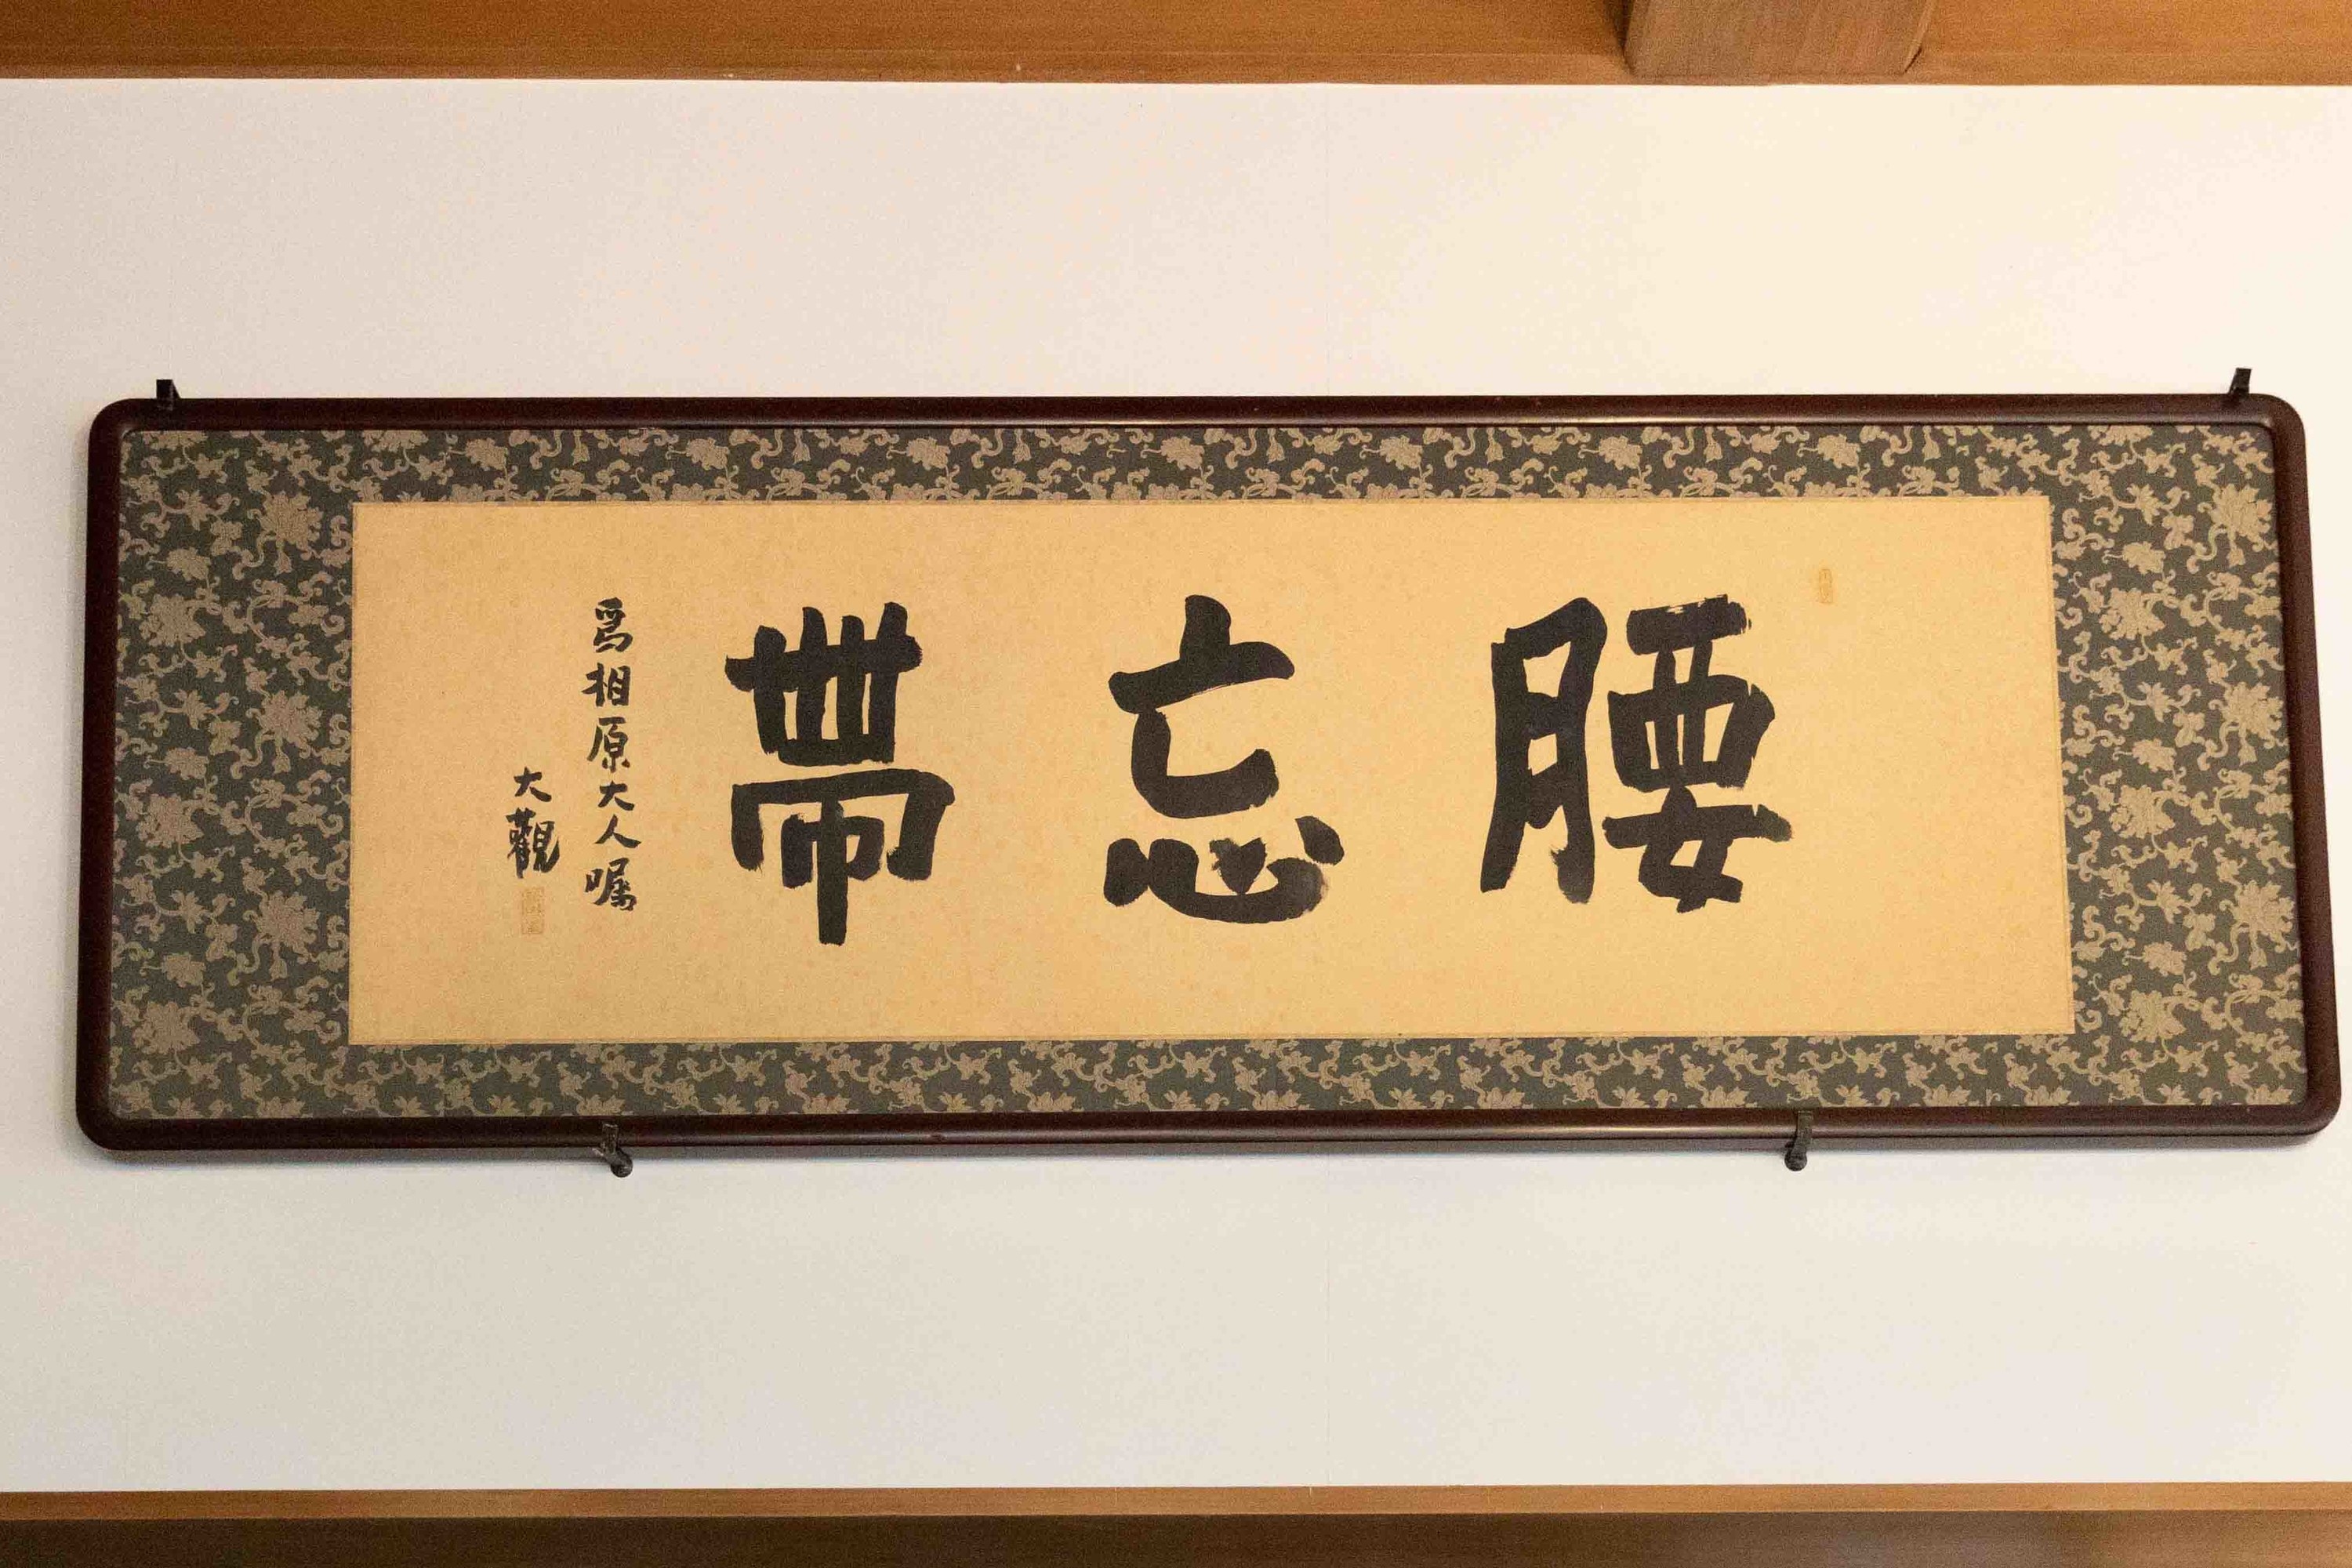 腰忘帶
爲相原大人嘱
大觀